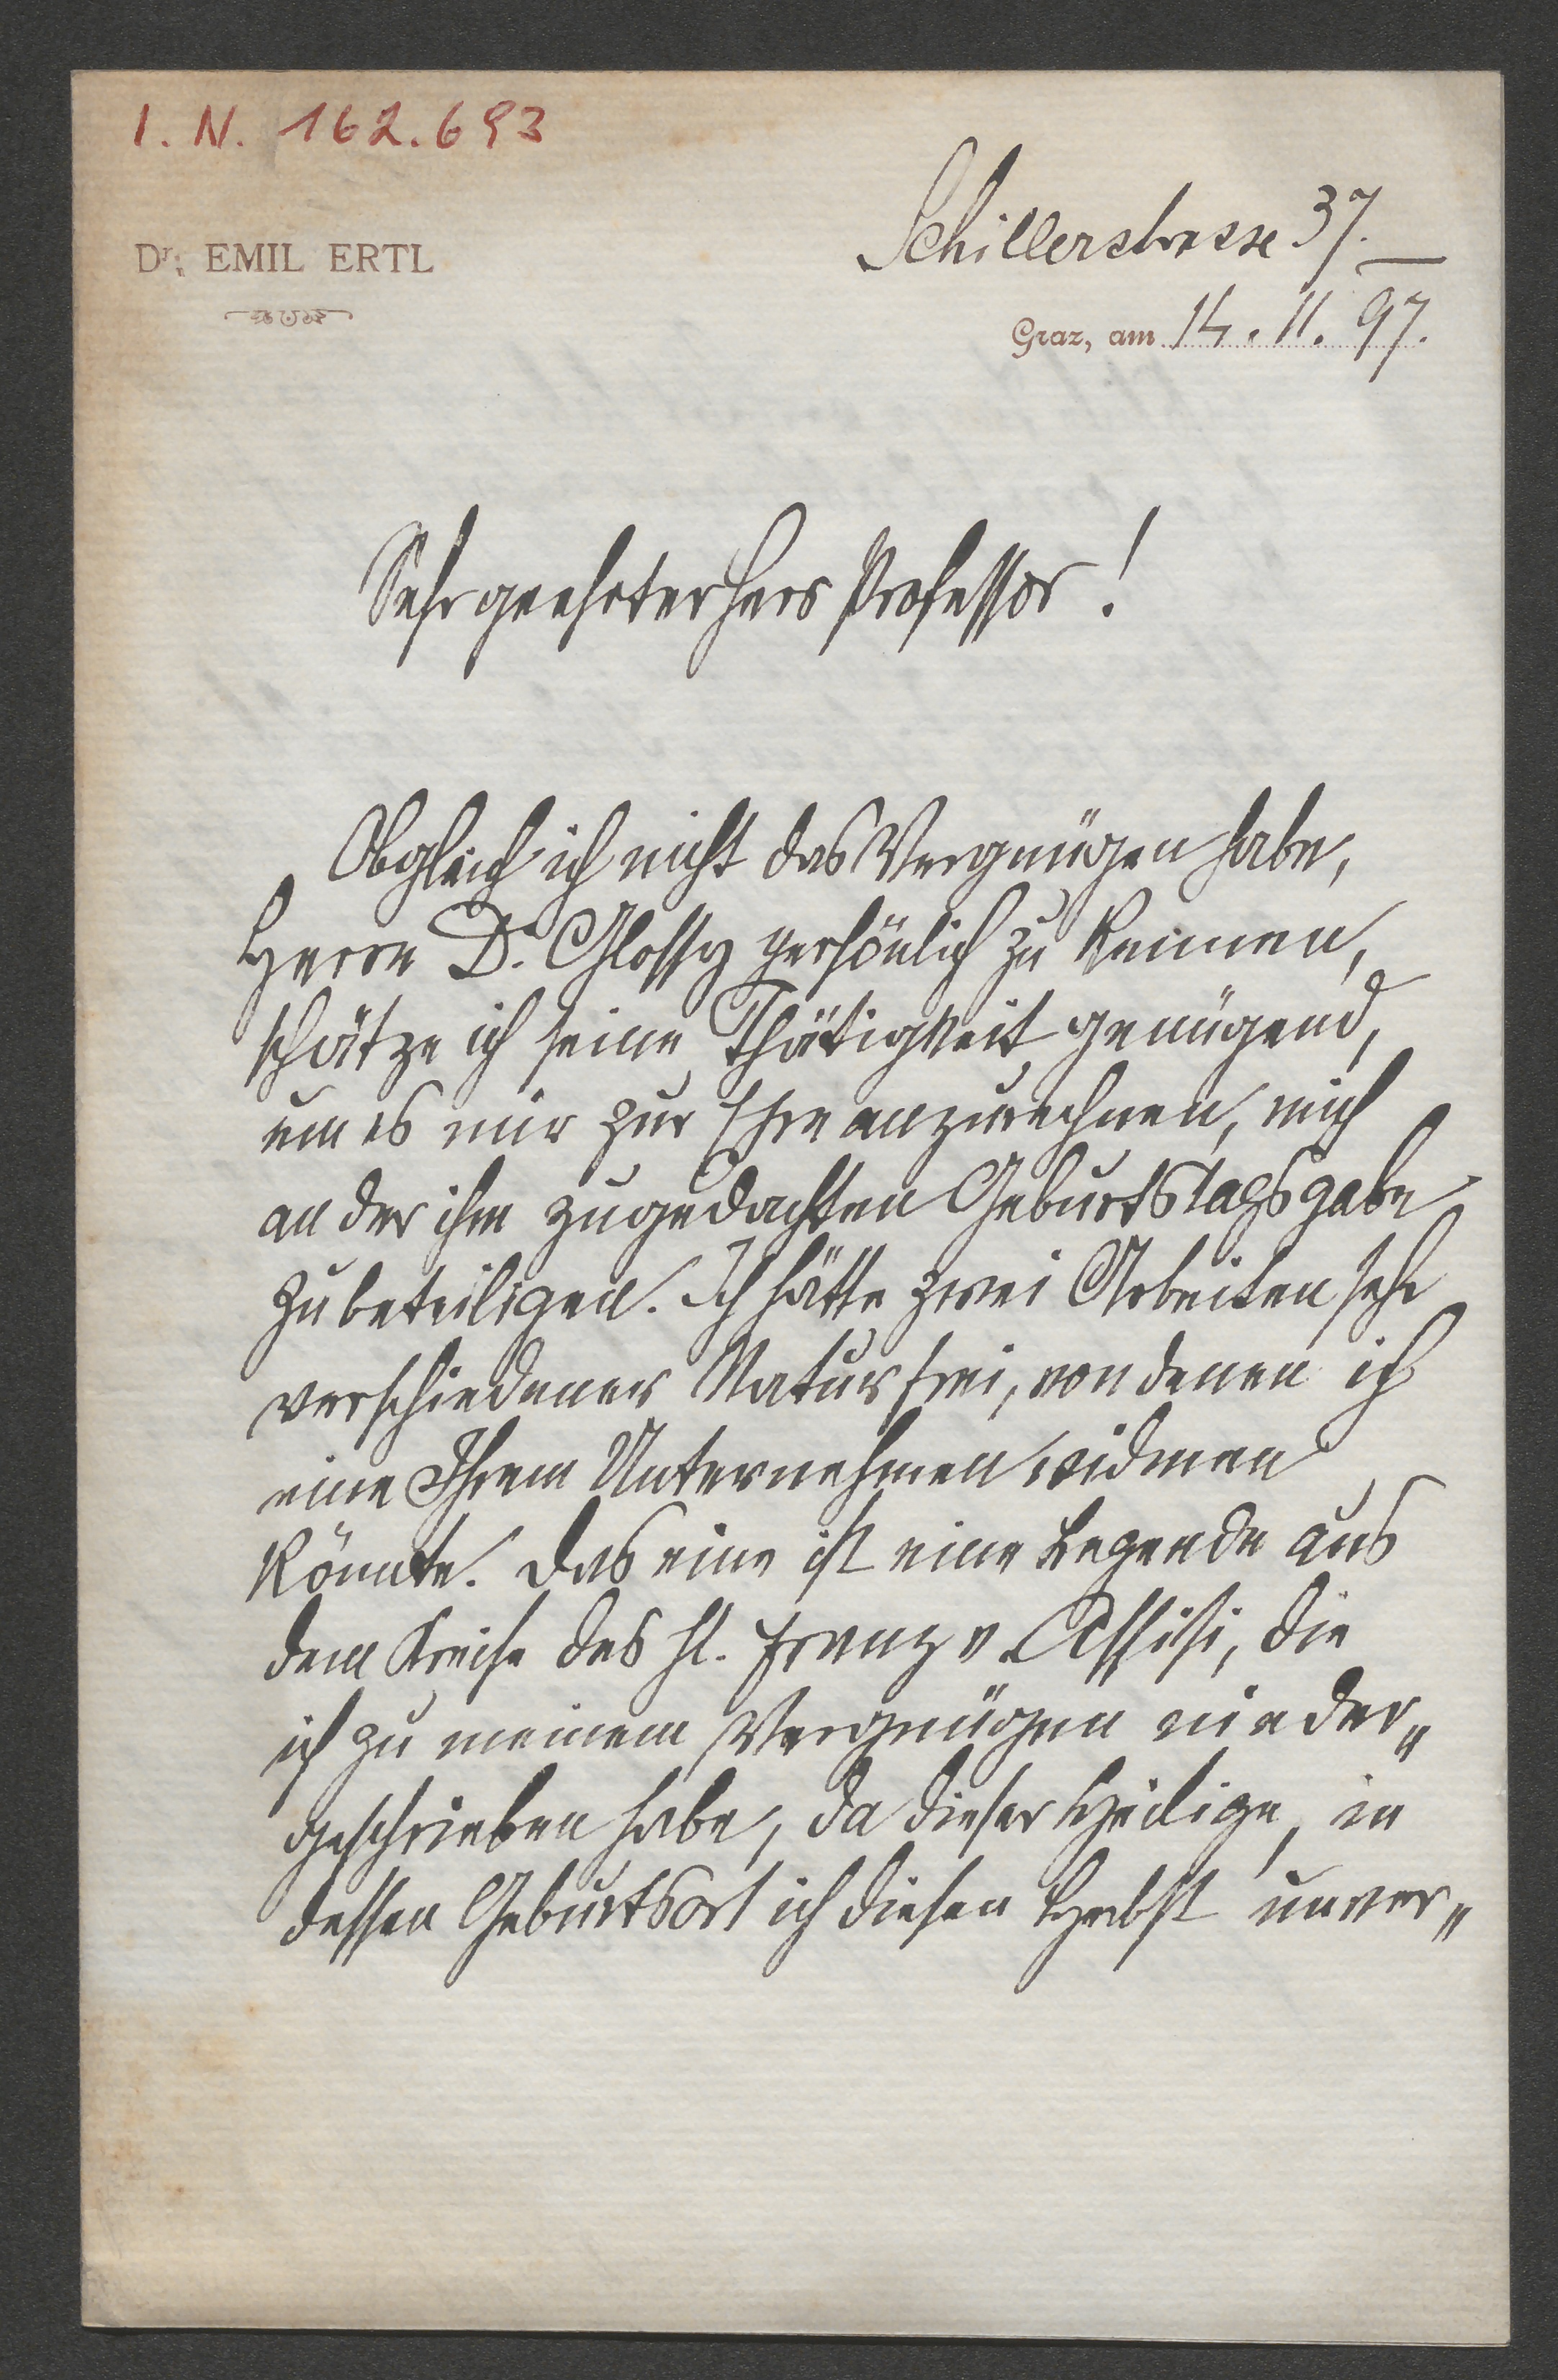 I. N. 162.693
Dr. EMIL ERTL
Schillerstrasse 37.
Graz, am 14. 11. 97.
Sehr geehrter Herr Professor!
Obgleich ich nicht das Vergnügen habe,
Herrn Dr. Glossy persönlich zu kennen,
schätze ich seine Thätigkeit genügend,
um es mir zur Ehre anzurechnen, mich
an der ihm zugedachten Geburtstagsgabe
zu beteiligen. Ich hätte zwei Arbeiten sehr
verschiedener Natur frei, von denen ich
eine Ihrem Unternehmen widmen
könnte. Das eine ist eine Legende aus
dem Kreise des hl. Franz v. Assisi, die
ich zu meinem Vergnügen nieder„
geschrieben habe, da dieser Heilige, in
dessen Geburtsort ich diesen Herbst unver„